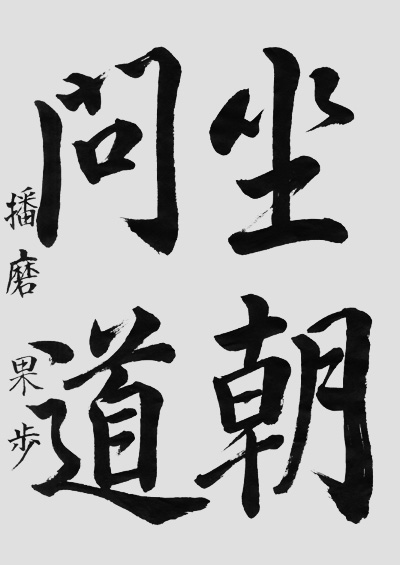 坐朝
問道
播磨 果歩